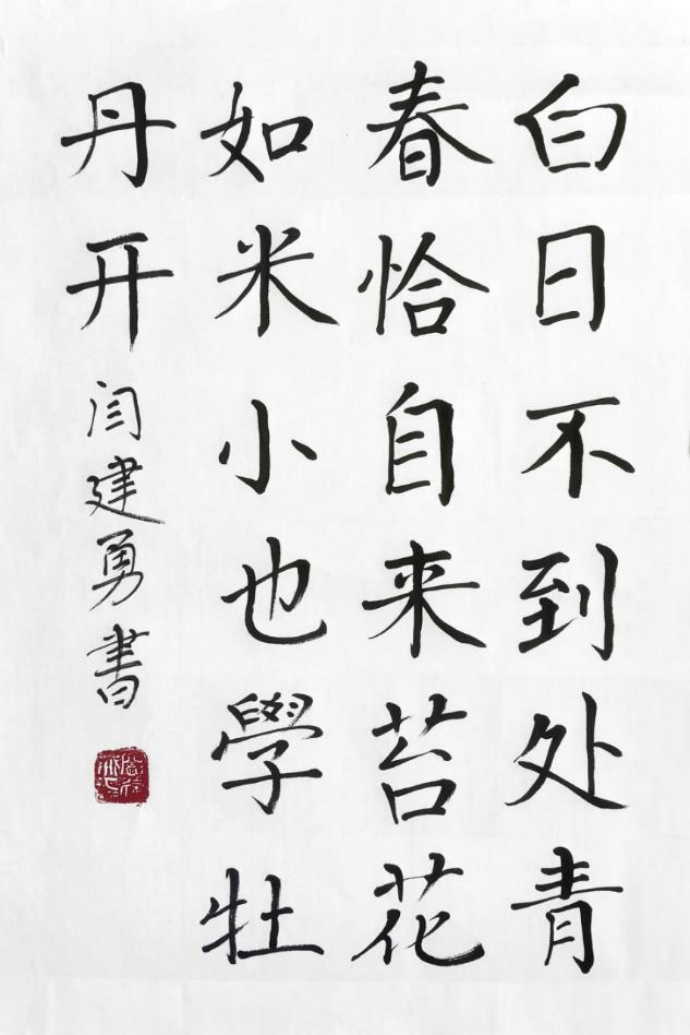 白日不到处青
春恰自来苔花
如米小也學牡
丹开
闫建勇書